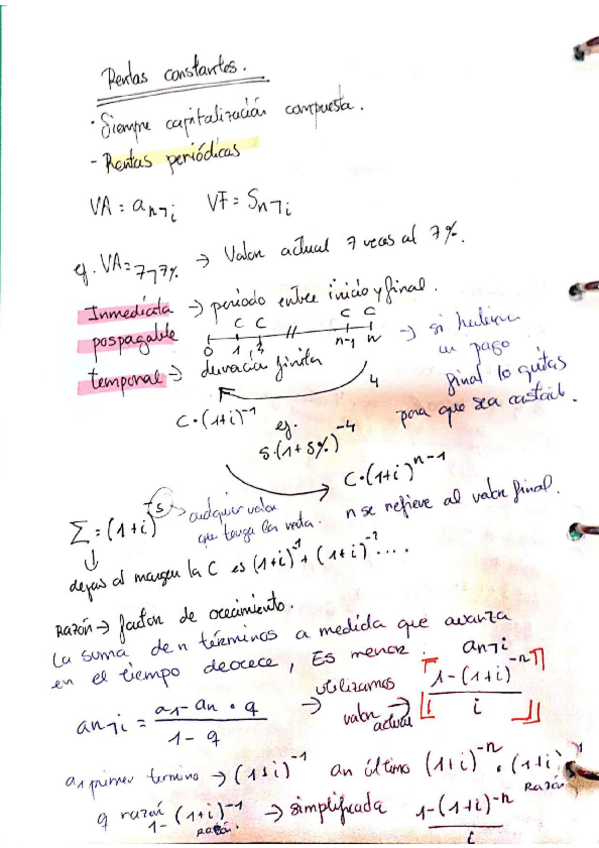 Rentas constantes.
· Siempre capitalización compuesta.
- Rentas periódicas
VA = an¬i   VF = Sn¬i
ej. VA = 7¬7% → Valor actual 7 veces al 7%.
Inmediata → periodo entre inicio y final.
C C C C
pospagable 0 1 2 // n-1 n → si hubiera
un pago
temporal → duración finita
4 final lo quitas
para que sea constante.
C·(1+i)⁻¹ ej.
5·(1+5%)⁻⁴
C·(1+i)ⁿ⁻¹
Σ = (1+i)ˢ → cualquier valor
que tenga la renta. n se refiere al valor final.
dejas al margen la C es (1+i)⁻¹ + (1+i)⁻² ...
Razón → factor de crecimiento.
La suma de n términos a medida que avanza
en el tiempo decrece, Es menor: an¬i
an¬i = a1 - an · q / 1 - q → utilizamos valor actual → [1-(1+i)⁻ⁿ / i]
a1 primer termino → (1+i)⁻¹ an último (1+i)⁻ⁿ · (1+i)⁻¹
Razón
q razón 1-(1+i)⁻¹ → simplificada 1-(1+i)⁻ⁿ / i
Razón.